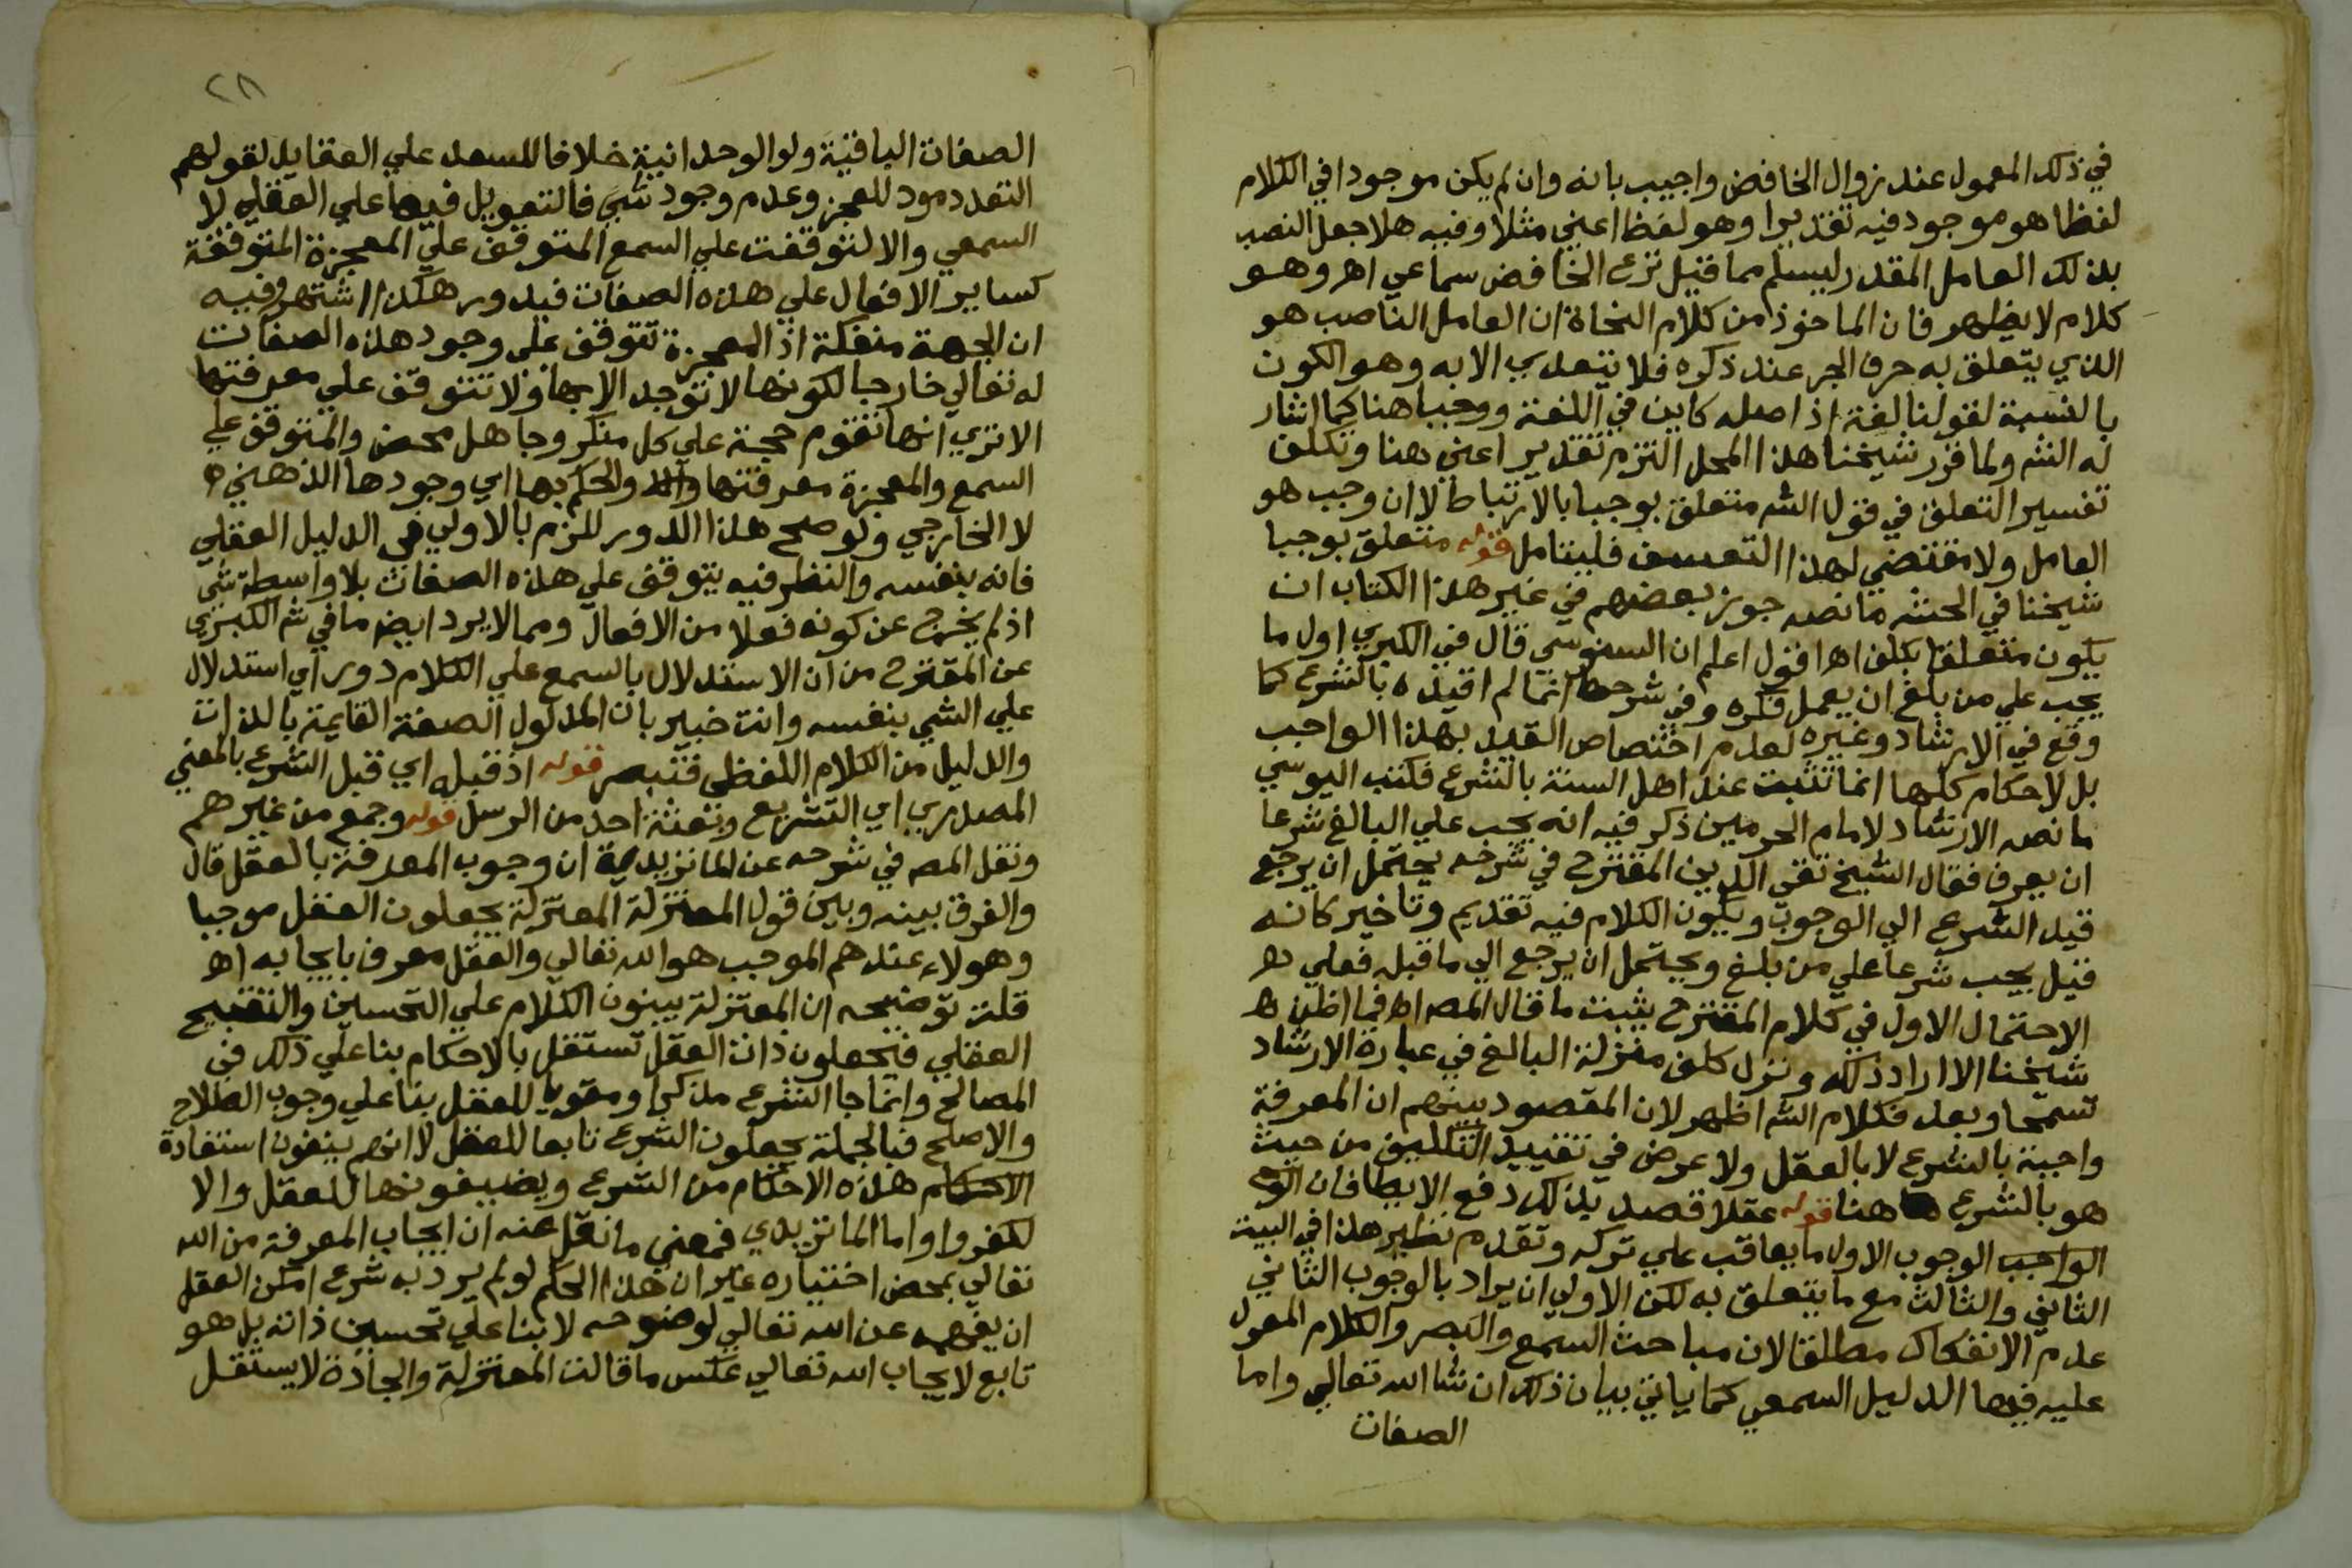 في ذلك المعمول عند زوال الخافض واجيب بانه وان لم يكن موجودا في الكلام
لفظا هو موجود فيه تقديرا وهو لفظ اعني مثلا وفيه هلا جعل النصب
بذلك العامل المقدر ليسلم مما قيل نزع الخافض سماعي اهـ وهو
كلام لا يظهر فان الماخوذ من كلام النحاة ان العامل الناصب هو
الذي يتعلق به حرف الجر عند ذكره فلا يتعدي الا به وهو الكون
بالنسبة لقولنا لغة اذ اصله كاين في اللغة ووجب هنا كما اشار
له الش ولما قرر شيخنا هذا المحل التزم تقدير اعني هنا وتكلف
تفسير التعلق في قول الش متعلق بوجب بالارتباط لا ان وجب هو
العامل ولا مقتضي لهذا التعسف فليتامل قوله متعلق بوجبا
شيخنا في الحش ما نصه جوز بعضهم في غير هذا الكتاب ان
يكون متعلقا بكلف اهـ اقول اعلم ان السنوسي قال في الكبري اول ما
يجب علي من بلغ ان يعمل فكره وفي شرحها انما لم اقيده بالشرع كما
وقع في الارشاد وغيره لعدم اختصاص القيد بهذا الواجب
بل الاحكام كلها انما تثبت عند اهل السنة بالشرع فكتب اليوسي
ما نصه الارشاد لامام الحرمين ذكر فيه انه يجب علي البالغ شرعا
ان يعرف فقال الشيخ تقي الدين المقترح في شرحه يحتمل ان يرجع
قيد الشرع الي الوجوب ويكون الكلام فيه تقديم وتاخير كانه
قيل يجب شرعا علي من بلغ ويحتمل ان يرجع الي ما قبله فعلي
الاحتمال الاول في كلام المقترح يثبت ما قال المصـ اهـ فيما اظن
شيخنا الا اراد ذلك ونزل كلف منزلة البالغ في عبارة الارشاد
تسمحا وبعد فكلام الش اظهر لان المقصود بينهم ان المعرفة
واجبة بالشرع لا بالعقل ولا غرض في تقييد التكليف من حيث
هو بالشرع هنا قوله عقلا قصد بذلك دفع الايطا فان
الواجب الوجوب الاول ما يعاقب علي تركه وتقدم نظير هذا في البيت
الثاني والثالث مع ما يتعلق به لكن الاولي ان يراد بالوجوب الثاني
عدم الانفكاك مطلقا لان مباحث السمع والبصر والكلام المعول
عليه فيها الدليل السمعي كما ياتي بيان ذلك ان شا الله تعالي واما
الصفات
٢٨
الصفات الباقية ولو الوحدانية خلافا للسعد علي العقايد لقولهم
التعدد مود للعجز وعدم وجود شي فالتعويل فيها علي العقلي لا
السمعي والا لتوقفت علي السمع المتوقف علي المعجزة المتوقفة
كساير الافعال علي هذه الصفات فيدور هكذا اشتهر وفيه
ان الجهة منفكة اذ المعجزة تتوقف علي وجود هذه الصفات
له تعالي خارجا لكونها لا توجد الا بها ولا تتوقف علي معرفتها
الا تري انها تقوم حجة علي كل منكر وجاهل محض والمتوقف علي
السمع والمعجزة معرفتها والحكم بها اي وجودها الذهني
لا الخارجي ولو صح هذا الدور للزم بالاولي في الدليل العقلي
فانه بنفسه والنظر فيه يتوقف علي هذه الصفات بلا واسطة شي
اذ لم يخرج عن كونه فعلا من الافعال ومما لا يرد ايضا ما في ش الكبري
عن المقترح من ان الاستدلال بالسمع علي الكلام دور اي استدلال
علي الشي بنفسه وانت خبير بان المدلول الصفة القايمة بالذات
والدليل من الكلام اللفظي فتبصر قوله اذ قبله اي قبل الشرع بالمعني
المصدري اي التشريع وبعثة احد من الرسل قوله وجمع من غيرهم
ونقل المصـ في شرحه عن الماتريدية ان وجوب المعرفة بالعقل قال
والفرق بينه وبين قول المعتزلة المعتزلة يجعلون العقل موجبا
وهولاء عندهم الموجب هو الله تعالي والعقل معرف بايجابه اهـ
قلت توضيحه ان المعتزلة يبنون الكلام علي التحسين والتقبيح
العقلي فيجعلون ذات العقل تستقل بالاحكام بنا علي ذلك في
المصالح وانما جا الشرع مذكرا ومقويا للعقل بنا علي وجوب الصلاح
والاصلح فبالجملة يجعلون الشرع تابعا للعقل لا انهم ينفون استفادة
الاحكام هذه الاحكام من الشرع ويضيفونها للعقل والا
لكفروا واما الماتريدي فمعني ما نقل عنه ان ايجاب المعرفة من الله
تعالي بمحض اختياره غير ان هذا الحكم لو لم يرد به شرع امكن العقل
ان يفهمه عن الله تعالي لوضوحه لا بنا علي تحسين ذاته بل هو
تابع لايجاب الله تعالي عكس ما قالت المعتزلة والجادة لا يستقل